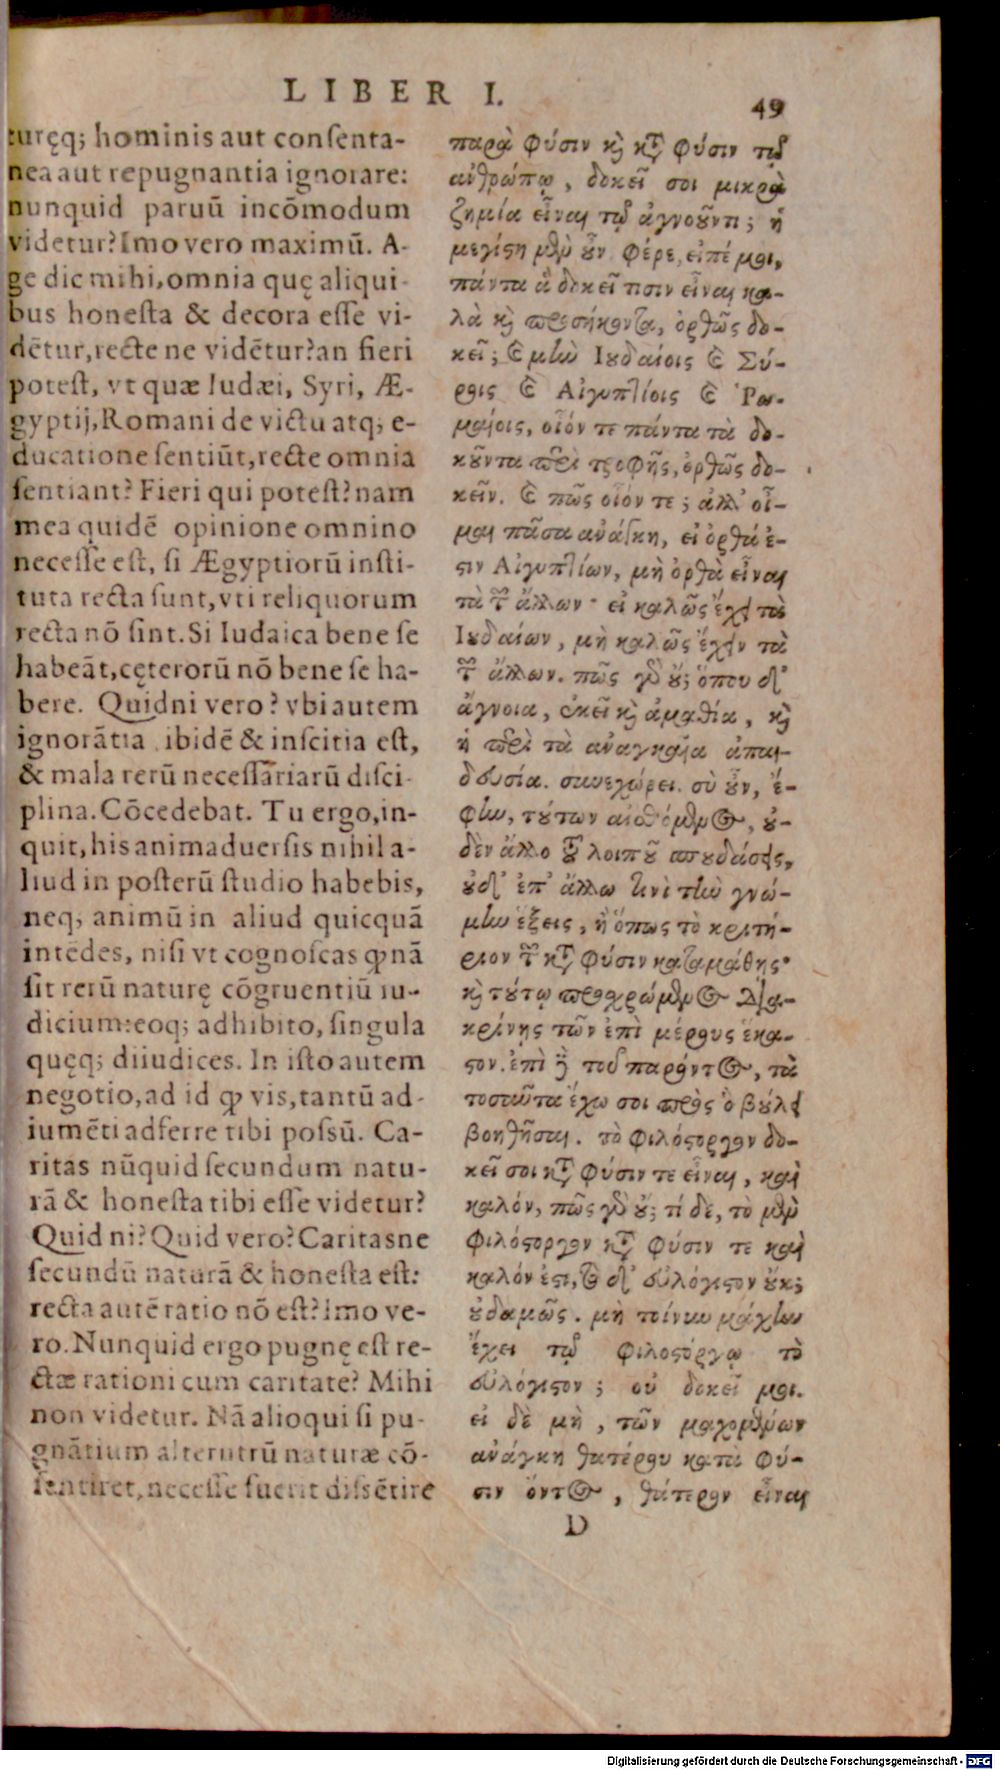 LIBER I.
49
turęq; hominis aut conſenta-
nea aut repugnantia ignorare:
nunquid paruū incōmodum
videtur? Imo vero maximū. A-
ge dic mihi, omnia quę aliqui-
bus honeſta & decora eſſe vi-
dētur, recte ne vidētur? an fieri
poteſt, vt quæ Iudæi, Syri, Æ-
gyptij, Romani de victu atq; e-
ducatione ſentiūt, recte omnia
ſentiant? Fieri qui poteſt? nam
mea quidē opinione omnino
neceſſe eſt, ſi Ægyptiorū inſti-
tuta recta ſunt, vti reliquorum
recta nō ſint. Si Iudaica bene ſe
habeāt, cęterorū nō bene ſe ha-
bere. Quidni vero? vbi autem
ignorātia, ibidē & inſcitia eſt,
& mala rerū neceſſariarū diſci-
plina. Cōcedebat. Tu ergo, in-
quit, his animaduerſis nihil a-
liud in poſterū ſtudio habebis,
neq; animū in aliud quicquā
intēdes, niſi vt cognoſcas ꝙnā
ſit rerū naturę cōgruentiū iu-
dicium: eoq; adhibito, ſingula
quęq; diiudices. In iſto autem
negotio, ad id ꝙ vis, tantū ad-
iumēti adferre tibi poſsū. Ca-
ritas nūquid ſecundum natu-
rā & honeſta tibi eſſe videtur?
Quid ni? Quid vero? Caritasne
ſecundū naturā & honeſta eſt:
recta autē ratio nō eſt? Imo ve-
ro. Nunquid ergo pugnę eſt re-
ctæ rationi cum caritate? Mihi
non videtur. Nā alioqui ſi pu-
gnātium alterutrū naturæ cō-
ſentiret, neceſſe fuerit diſsētire
παρὰ φύσιν κὶ κτ̃ φύσιν τῷ
ἀνθρώπῳ, δοκεῖ σοι μικρὰ
ζημία εἶναι τῷ ἀγνοοῦντι; ἡ
μεγίϛη μὲν οὖν. φέρε, εἰπέ μοι,
πάντα ἃ δοκεῖ τισιν εἶναι κα-
λὰ κὶ προσήκοντα, ὀρθῶς δο-
κεῖ; καὶ μὴν Ιουδαίοις καὶ Σύ-
ροις καὶ Αἰγυπτίοις καὶ Ῥω-
μαίοις, οἷόν τε πάντα τὰ δο-
κοῦντα περὶ τροφῆς, ὀρθῶς δο-
κεῖν. καὶ πῶς οἷόν τε; ἀλλ' οἶ-
μαι πᾶσα ἀνάγκη, εἰ ὀρθά ἐ-
ϛιν Αἰγυπτίων, μὴ ὀρθὰ εἶναι
τὰ τῶν ἄλλων· εἰ καλῶς ἔχει τὰ
Ιουδαίων, μὴ καλῶς ἔχειν τὰ
τῶν ἄλλων. πῶς γὰρ οὔ; ὅπου δ'
ἄγνοια, ἐκεῖ κὶ ἀμαθία, κὶ
ἡ περὶ τὰ ἀναγκαῖα ἀπαι-
δευσία. συνεχώρει. σὺ οὖν, ἔ-
φη, τούτων αἰσθόμενος, οὐ-
δὲν ἄλλο τοῦ λοιποῦ σπουδάσεις,
οὐδ' ἐπ' ἄλλῳ τινὶ τὴν γνώ-
μην ἕξεις, ἢ ὅπως τὸ κριτή-
ριον τῶν κτ̃ φύσιν καταμάθῃς·
κὶ τούτῳ προσχρώμενος δια-
κρίνῃς τῶν ἐπὶ μέρους ἕκα-
ϛον. ἐπὶ δὲ τοῦ παρόντος, τὰ
τοσαῦτα ἔχω σοι πρὸς ὃ βούλει
βοηθῆσαι. τὸ φιλόϛοργον δο-
κεῖ σοι κτ̃ φύσιν τε εἶναι, καὶ
καλόν, πῶς γὰρ οὔ; τί δὲ, τὸ μὲν
φιλόϛοργον κτ̃ φύσιν τε καὶ
καλόν ἐϛι, τὸ δ' εὐλόγιϛον οὔκ;
οὐδαμῶς. μὴ τοίνυν μάχην
ἔχει τῷ φιλοϛόργῳ τὸ
εὐλόγιϛον; οὐ δοκεῖ μοι.
εἰ δὲ μὴ, τῶν μαχομένων
ἀνάγκη θατέρου κατὰ φύ-
σιν ὄντος, θάτερον εἶναι
D
Digitalisierung gefördert durch die Deutsche Forschungsgemeinschaft - DFG